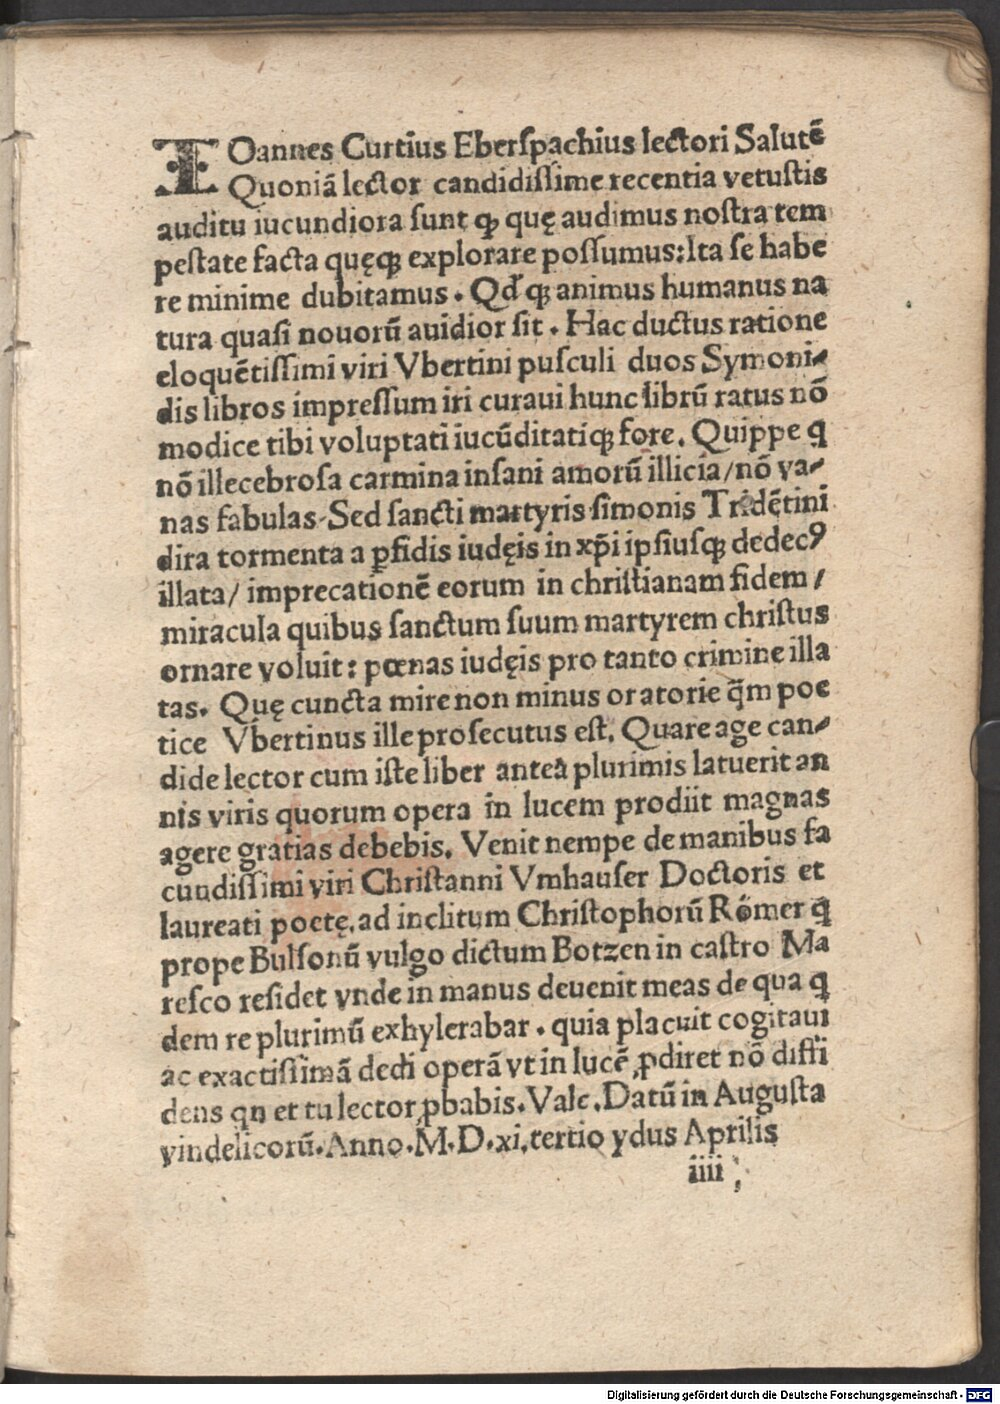 IOannes Curtius Eberſpachius lectori Salutē
Quoniā lector candidiſſime recentia vetuſtis
auditu iucundiora ſunt ꝙ quę audimus noſtra tem
peſtate facta quęqꝫ explorare poſſumus: Ita ſe habe
re minime dubitamus. Qđ qꝫ animus humanus na
tura quaſi nouorū auidior ſit. Hac ductus ratione
eloquētiſſimi viri Vbertini puſculi duos Symoni-
dis libros impreſſum iri curaui hunc librū ratus nō
modice tibi voluptati iucūditatiqꝫ fore. Quippe q
nō illecebroſa carmina inſani amorū illicia/ nō va-
nas fabulas. Sed ſancti martyris ſimonis Tridētini
dira tormenta a ꝑfidis iudęis in xp̄i ipſiuſqꝫ dedecꝰ
illata/ imprecationē eorum in chriſtianam fidem/
miracula quibus ſanctum ſuum martyrem chriſtus
ornare voluit: pœnas iudęis pro tanto crimine illa
tas. Quę cuncta mire non minus oratorie q̄m poe
tice Vbertinus ille proſecutus eſt. Quare age can-
dide lector cum iſte liber antea plurimis latuerit an
nis viris quorum opera in lucem prodiit magnas
agere gratias debebis. Venit nempe de manibus fa
cundiſſimi viri Chriſtanni Vmhauſer Doctoris et
laureati poetę. ad inclitum Chriſtophorū Römer q̄
prope Bulſonū vulgo dictum Botzen in caſtro Ma
reſco reſidet vnde in manus deuenit meas de qua q
dem re plurimū exhylerabar. quia placuit cogitaui
ac exactiſſimā dedi operā vt in lucē ꝓdiret nō diffi
dens qn et tu lector ꝓbabis. Vale. Datū in Auguſta
vindelicorū. Anno. M. D. xi. tertio ydus Aprilis
iiii ;
Digitalisierung gefördert durch die Deutsche Forschungsgemeinschaft - DFG